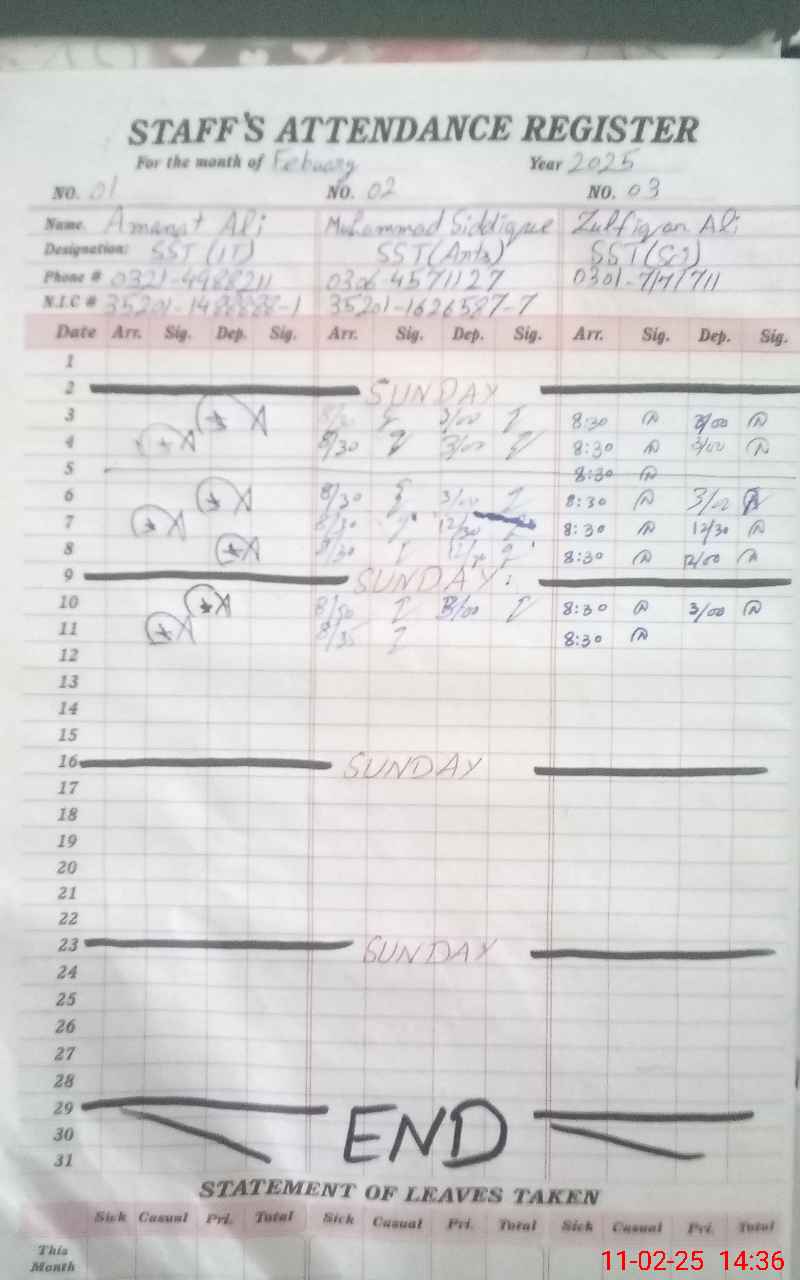 STAFF'S ATTENDANCE REGISTER
For the month of Febuary Year 2025
NO. 01 NO. 02 NO. 03
Name. Amanat Ali Muhammad Siddique Zulfiqar Ali
Designation: SST (IT) SST (Arts) SST (Sci)
Phone # 0321-4988211 0306-4571127 0301-7171711
N.I.C # 35201-1488888-1 35201-1626587-7
Date Arr. Sig. Dep. Sig. Arr. Sig. Dep. Sig. Arr. Sig. Dep. Sig.
1
2 SUNDAY
3 8/30 3/00 8:30 3/00
4 8/30 3/00 8:30 3/00
5 8:30
6 8/30 3/00 8:30 3/00
7 8/30 12/30 8:30 12/30
8 8/30 8:30 12/00
9 SUNDAY
10 8/30 3/00 8:30 3/00
11 8/35 8:30
12
13
14
15
16 SUNDAY
17
18
19
20
21
22
23 SUNDAY
24
25
26
27
28
29 END
30
31
STATEMENT OF LEAVES TAKEN
Sick Casual Pri. Total Sick Casual Pri. Total Sick Casual Pri. Total
This
Month
11-02-25 14:36